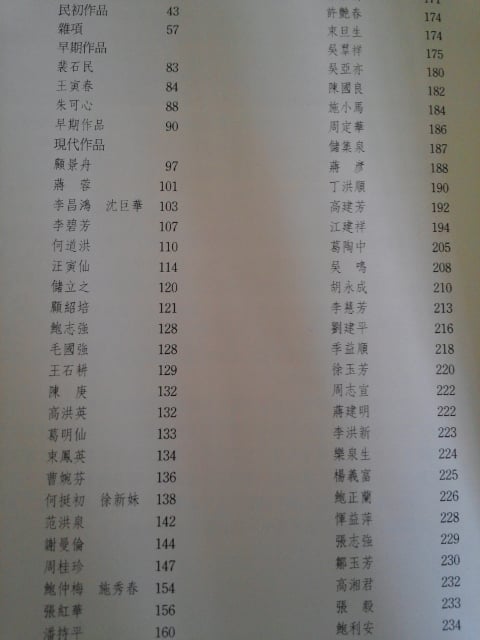 民初作品 43
雜項 57
早期作品
裴石民 83
王寅春 84
朱可心 88
早期作品 90
現代作品
顧景舟 97
蔣 蓉 101
李昌鴻 沈巨華 103
李碧芳 107
何道洪 110
汪寅仙 114
儲立之 120
顧紹培 121
鮑志強 128
毛國強 128
王石耕 129
陳 庚 132
高洪英 132
葛明仙 133
束鳳英 134
曹婉芬 136
何挺初 徐新妹 138
范洪泉 142
謝曼倫 144
周桂珍 147
鮑仲梅 施秀春 154
張紅華 156
潘持平 160
171
許艷春 174
束旦生 174
吳羣祥 175
吳亞亦 180
陳國良 182
施小馬 184
周定華 186
儲集泉 187
蔣 彥 188
丁洪順 190
高建芳 192
江建祥 194
葛陶中 205
吳 鳴 208
胡永成 210
李慧芳 213
劉建平 216
季益順 218
徐玉芳 220
周志宣 222
蔣建明 222
李洪新 223
樂泉生 224
楊義富 225
鮑正蘭 226
惲益萍 228
張志強 229
鄒玉芳 230
高湘君 232
張 毅 233
鮑利安 234